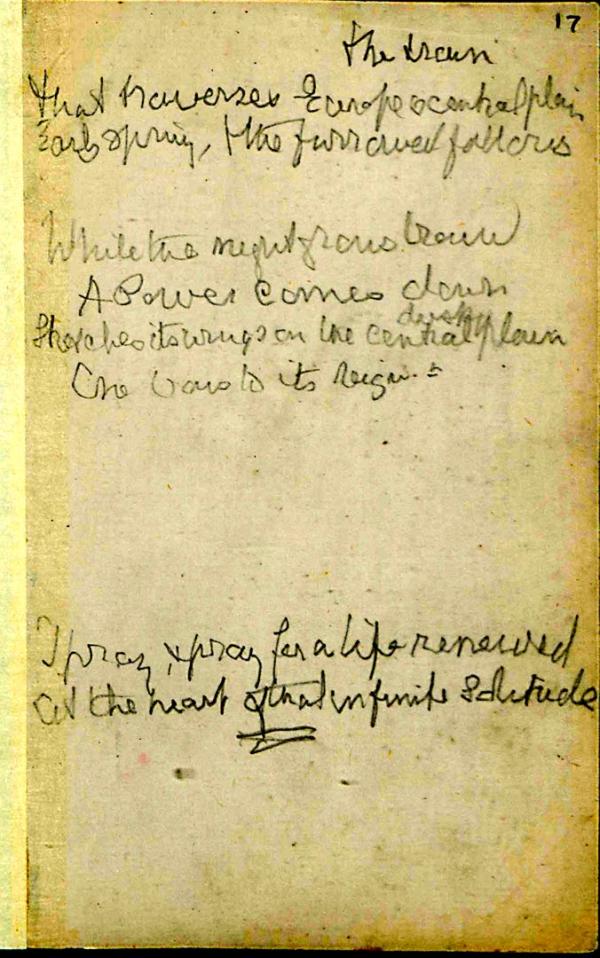 17
The train
that traverses Europe's central plain
Early spring, & the furrowed fallows
While the night grows
A Power comes down
Stretches its wings on the central plain
dusky
One bows to its reign.
I pray, & pray for a life renewed
At the heart of that infinite Solitude